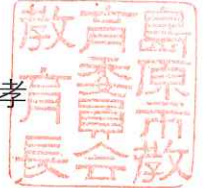 孝
島原市教
育委員会
教育長